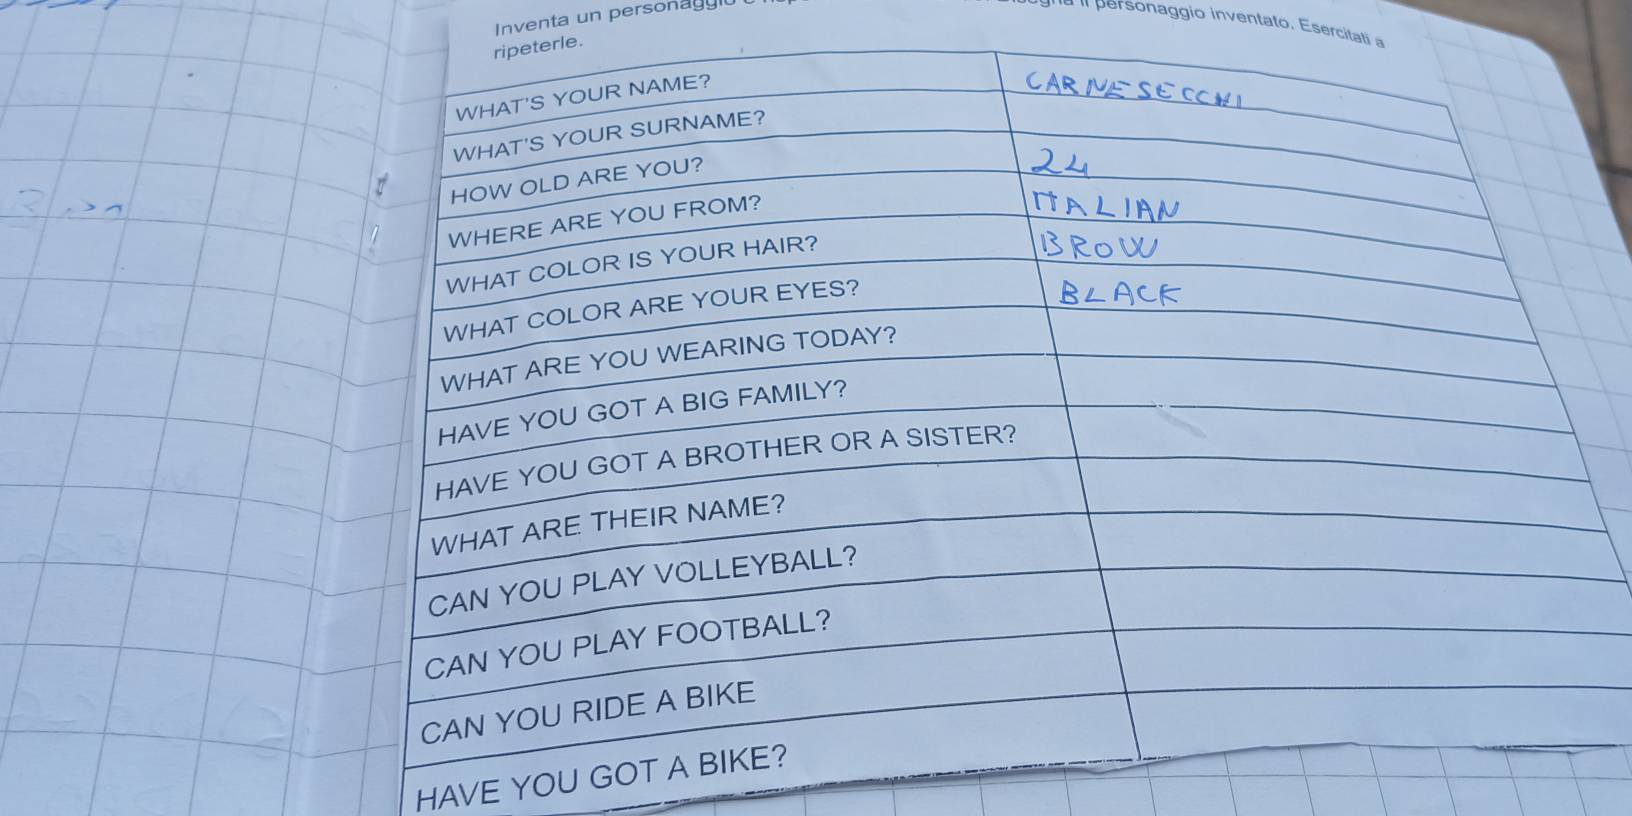 Inventa un personaggio
il personaggio inventato. Esercitati a
ripeterle.
WHAT'S YOUR NAME? CARNESECCHI
WHAT'S YOUR SURNAME?
HOW OLD ARE YOU? 24
WHERE ARE YOU FROM? ITALIAN
WHAT COLOR IS YOUR HAIR? BROW
WHAT COLOR ARE YOUR EYES? BLACK
WHAT ARE YOU WEARING TODAY?
HAVE YOU GOT A BIG FAMILY?
HAVE YOU GOT A BROTHER OR A SISTER?
WHAT ARE THEIR NAME?
CAN YOU PLAY VOLLEYBALL?
CAN YOU PLAY FOOTBALL?
CAN YOU RIDE A BIKE
HAVE YOU GOT A BIKE?